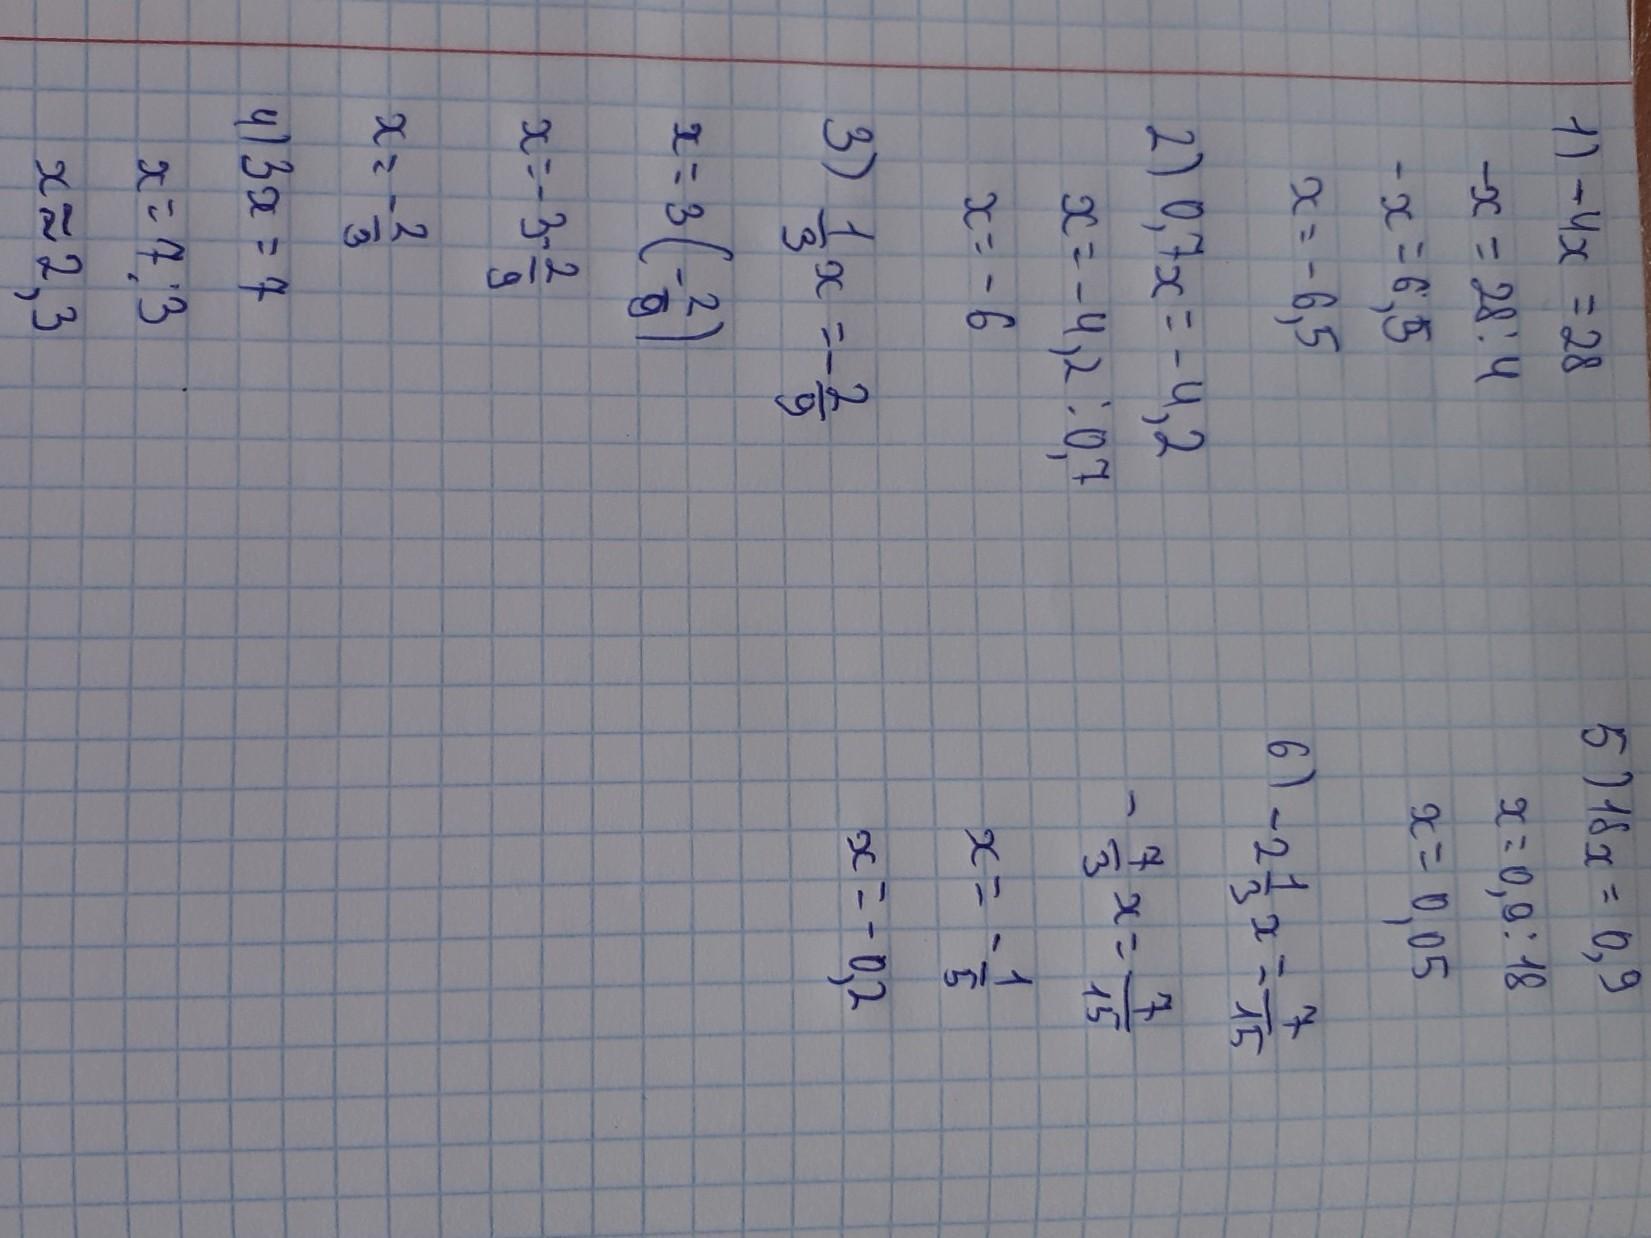 1) -4x = 28
-x = 28:4
-x = 6,5
x = -6,5
2) 0,7x = -4,2
x = -4,2 : 0,7
x = -6
3) 1/3 x = -2/9
x = 3(-2/9)
x = -3·2/9
x = -2/3
4) 3x = 7
x = 7:3
x ≈ 2,3
5) 18x = 0,9
x = 0,9:18
x = 0,05
6) -2 1/3 x = 7/15
-7/3 x = 7/15
x = -1/5
x = -0,2